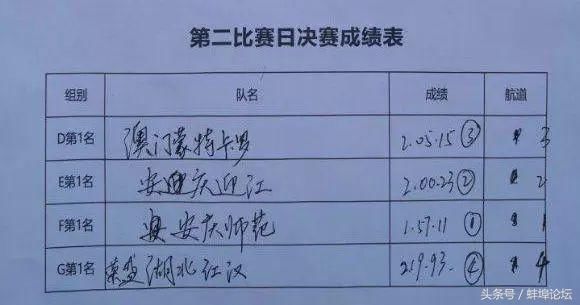 第二比赛日决赛成绩表
组别 队名 成绩 航道
D第1名 澳门蒙特卡罗 2.05.15 ③ 3
E第1名 安庆迎江 2.00.23 ② 2
F第1名 安庆师范 1.57.11 ① 1
G第1名 湖北江汉 2.19.93. ④ 4
头条号/蚌埠论坛